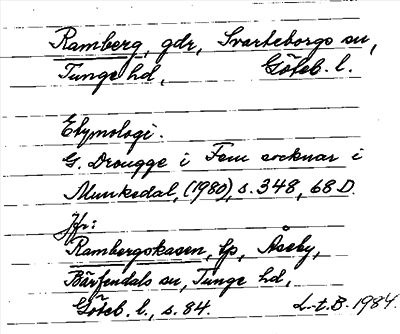 Ramberg, gdr, Svarteborgs sn,
Tunge hd, Göteb. l.
Etymologi.
G. Drougge i Fem socknar i
Munkedal, (1980), s. 348, 68 D.
Jfr:
Rambergskasen, lp, Åseby,
Bärfendals sn, Tunge hd,
Göteb. l., s. 84. L-t. B. 1984.